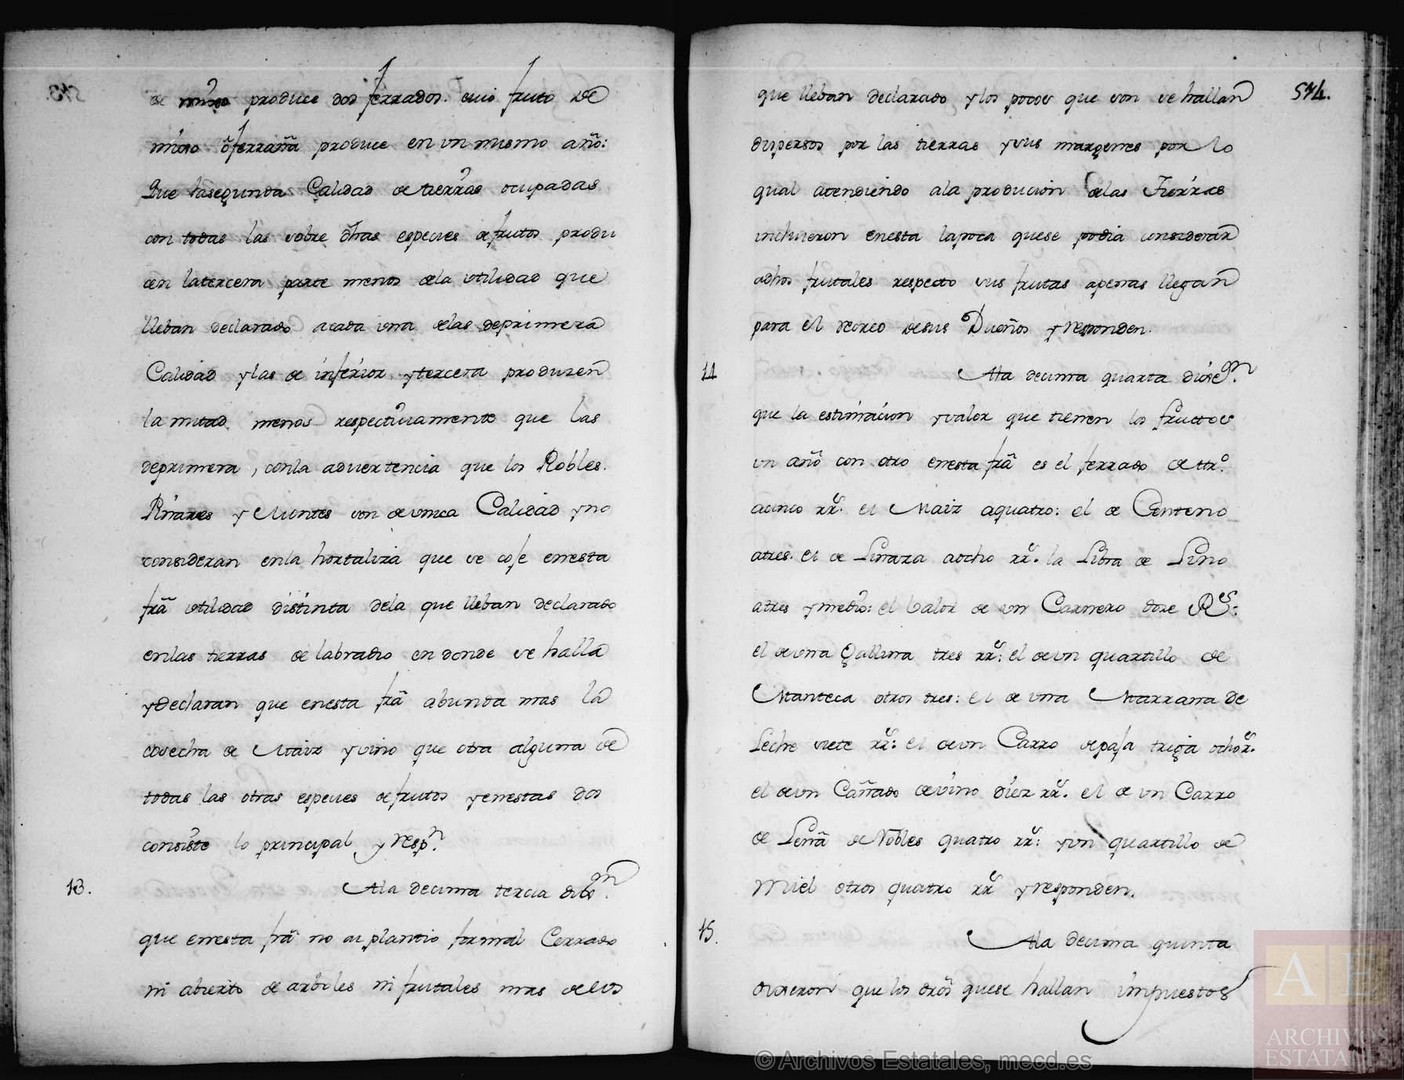 de mixo produce dos ferrados. cuio fruto de
mixo ô ferraña produce en vn mismo año:
Que la segunda Calidad de tierras ocupadas
con todas las sobre dhas especies de frutos produ
cen la tercera parte menos de la vtilidad que
lleban declarado acada vna de las de primera
Calidad y las de inferior y tercera producen
la mitad menos respectivamente que las
de primera, con la advertencia que los Robles.
y Montes son de vnica Calidad y no
consideran en la hortaliza que se coje en esta
frã vtilidad distinta de la que lleban declarado
en las tierras de labradio en donde se halla
y declaran que en esta frã abunda mas la
cosecha de Maiz y vino que otra alguna de
todas las otras especies de frutos y en estas dos
consiste lo principal y resp.n
13. A la decima tercia dix.on
que en esta frã no ai plantio formal Cerrado
ni abierto de arboles ni frutales mas de los
514.
que lleban declarado y los pocos que son se hallan
dispersos por las tierras y sus margenes por lo
qual atendiendo ala producion de las Tierras
incluieron en esta la poca que se podia considerar
adhos frutales respecto sus frutas apenas llegan
para el recreo de sus Dueños y responden.
14 A la decima quarta dixe.on
que la estimacion y valor que tienen los fructos
vn año con otro en esta frã es el ferrado de tr.o
acinco rr.s el Maiz aquatro: el de Centeno
atres. el de Linaza aocho rr.s la Libra de Lino
atres y medio: el balor de vn Carnero doze R.s:
el de vna Gallina tres rr.s: el de vn quartillo de
Manteca otros tres: el de vna Marrana de
Leche siete rr.s: el de vn Carro de paja triga ocho r.s
el de vn Cañado de vino diez rr.s. el de vn Carro
de Leña de Robles quatro rr.s: y vn quartillo de
Miel otros quatro rr.s y responden.
15. A la decima quinta
dixeron que los dros que se hallan impuestos
© Archivos Estatales, mecd.es
A E
ARCHIVOS
ESTATALES